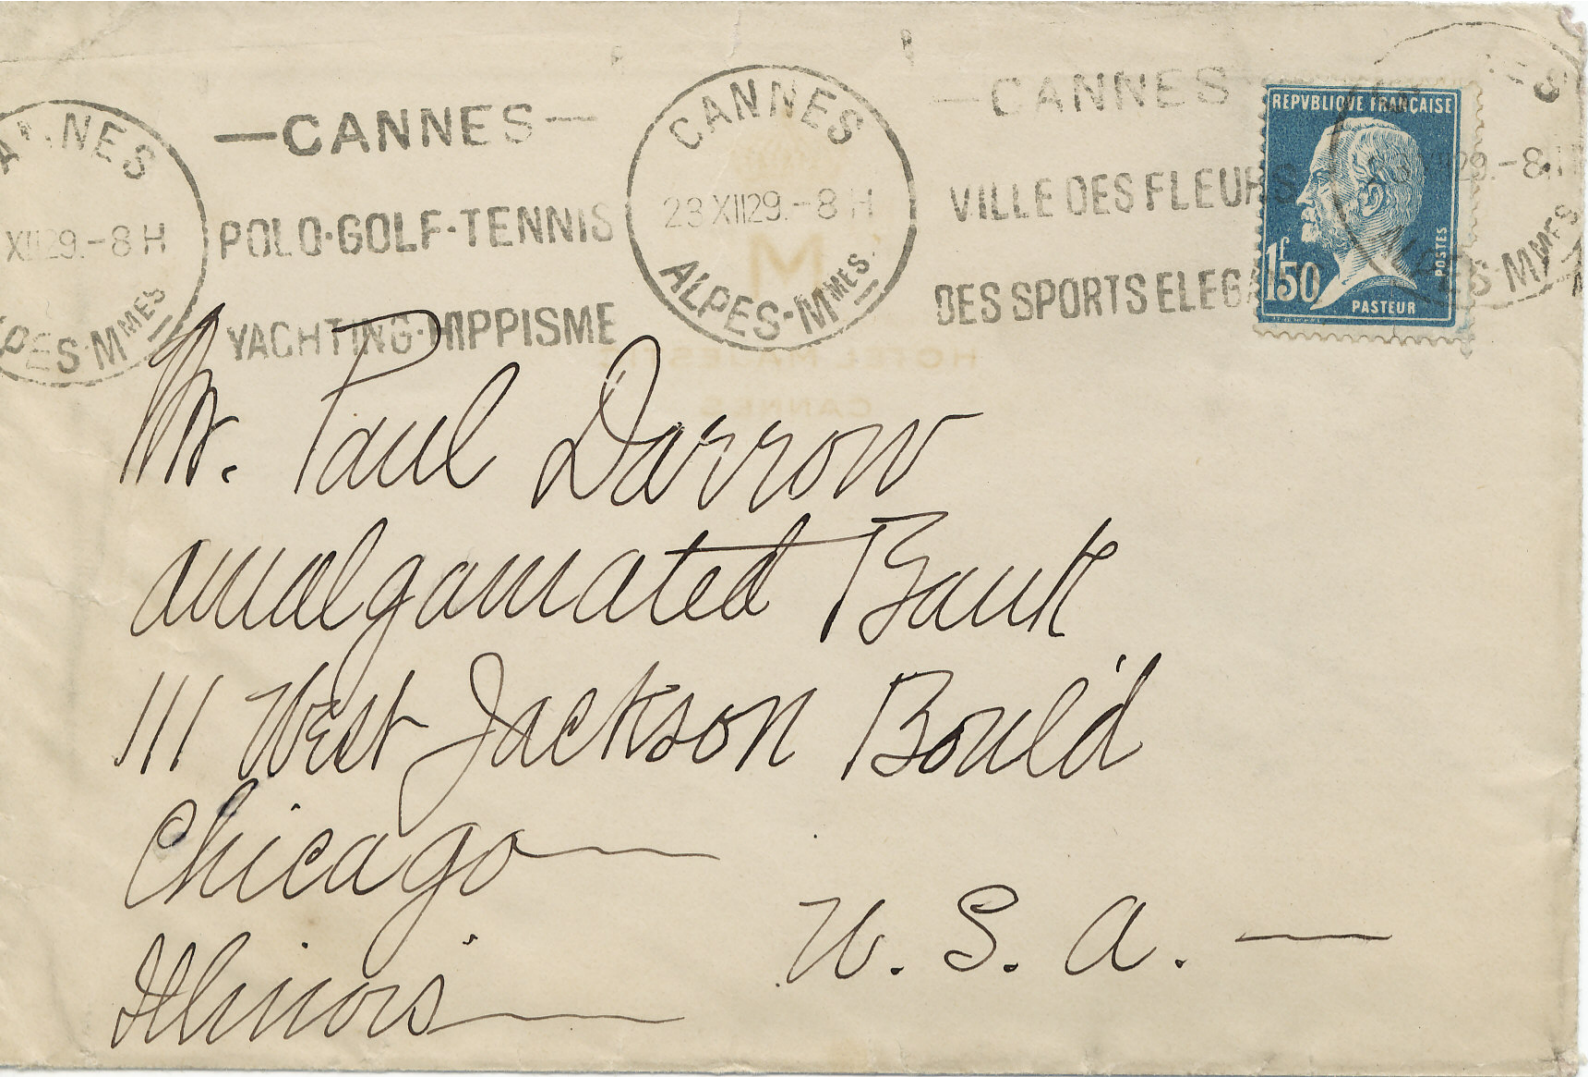 CANNES
XII29.-8H
ALPES-MMES
—CANNES—
POLO·GOLF·TENNIS
YACHTING·HIPPISME
CANNES
23XII29.-8H
ALPES-MMES.
—CANNES
VILLE DES FLEURS
DES SPORTS ELEG
REPVBLIQVE FRANÇAISE
1f50
POSTES
PASTEUR
29.-8H
ALPES-MMES
HOTEL MAJESTIC
CANNES
Mr. Paul Darrow
Amalgamated Bank
111 West Jackson Bould
Chicago—
Illinois—
U. S. A. —